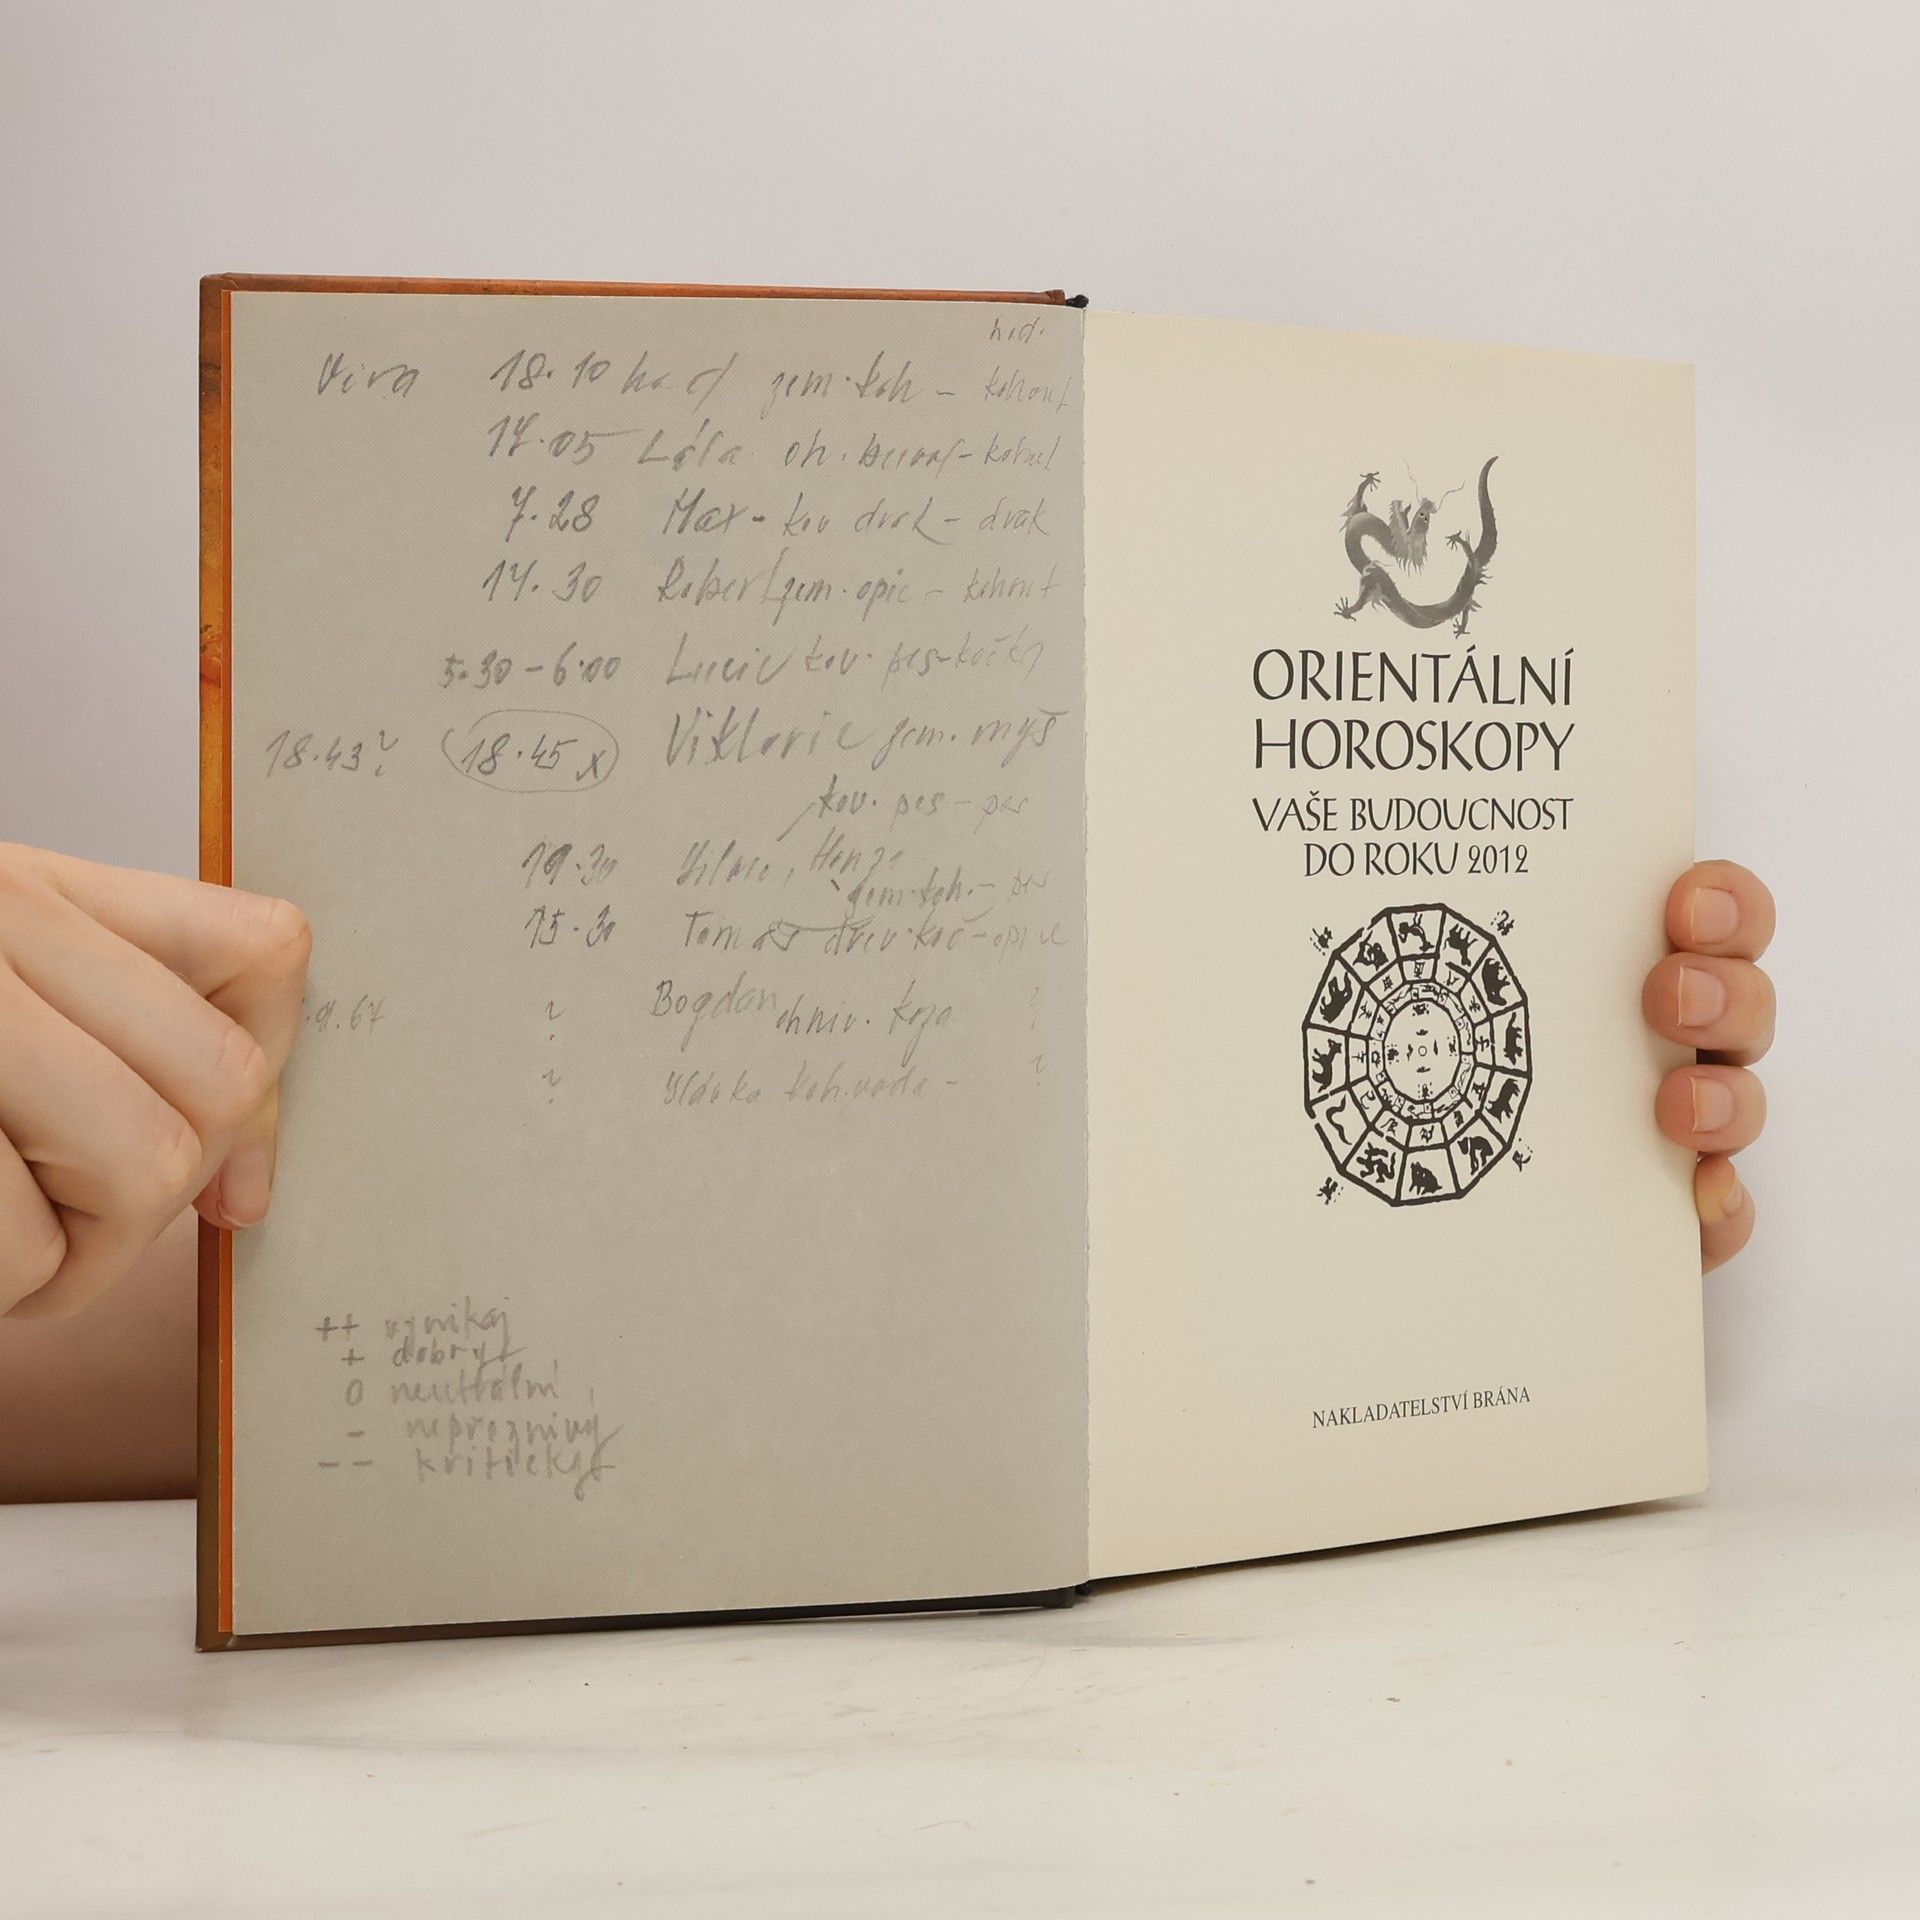 hod.
18.10 had zem. koh - kohout
17.05 oh. - kohout
7.28 Max - kov drak - drak
14.30 Robert zem. opic - kohout
5.30 - 6.00 Lucie kov. pes - kočky
18.43? 18.45 x Viktorie zem. myš
kov. pes - pes
19.30 Honza
zem. koh. - pes
15.30 Tomáš dřev. koč - opice
.9.67 ? Bogdan ohniv. koza ?
? koh. voda - ?
++ vynikaj
+ dobrý
0 neutrální
- nepřeznivý
-- kritický
ORIENTÁLNÍ
HOROSKOPY
VAŠE BUDOUCNOST
DO ROKU 2012
NAKLADATELSTVÍ BRÁNA